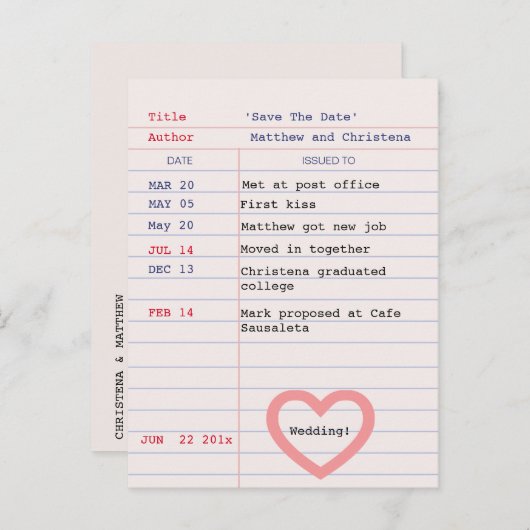 Title 'Save The Date'
Author Matthew and Christena
DATE ISSUED TO
MAR 20 Met at post office
MAY 05 First kiss
May 20 Matthew got new job
JUL 14 Moved in together
DEC 13 Christena graduated
college
FEB 14 Mark proposed at Cafe
Sausaleta
JUN 22 201x Wedding!
CHRISTENA & MATTHEW